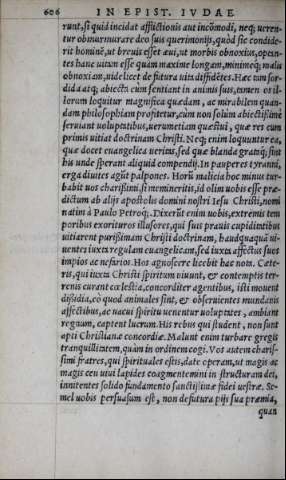 606 IN EPIST. IVDAE
runt, si quid incidat afflictionis aut incōmodi, neq; ueren-
tur obmurmurare deo suis querimonijs, quòd sic condide-
rit hominē, ut breuis esset æui, ut morbis obnoxius, optan-
tes hanc uitam esse quàm maxime longam, minimeq; malis
obnoxiam, uidelicet de futura uita diffidētes. Hæc cum sor-
dida atq; abiecta cum sentiant in animis suis, tamen os il-
lorum loquitur magnifica quædam, ac mirabilem quan-
dam philosophiam profitetur, cum non solum abiectißimè
seruiant uoluptatibus, uerumetiam quæstui, quæ res cum
primis uitiat doctrinam Christi. Neq; enim loquuntur ea,
quæ docet euangelica ueritas, sed quæ blanda gratiq; sint
his unde sperant aliquid compendij. In pauperes tyranni,
erga diuites agūt palpones. Horū malicia hoc minus tur-
babit uos charißimi, si memineritis, id olim uobis esse præ-
dictum ab alijs apostolis domini nostri Iesu Christi, nomi
natim à Paulo Petroq;. Dixerūt enim uobis, extremis tem
poribus exorituros illusores, qui suis prauis cupiditatibus
uitiarent purißimam Christi doctrinam, haudquaquā ui-
uentes iuxta regulam euangelicam, sed iuxta affectus suos
impios ac nefarios. Hos agnoscere licebit hac nota. Cæte-
ris, qui iuxta Christi spiritum uiuunt, & contemptis ter-
renis curant cœlestia, concorditer agentibus, isti mouent
dißidia, eò quod animales sint, & obseruientes mundanis
affectibus, ac uacui spiritu uenentur uoluptates, ambiant
regnum, captent lucrum. His rebus qui student, non sunt
apti Christianæ concordiæ. Malunt enim turbare gregis
tranquillitatem, quàm in ordinem cogi. Vos autem charis-
simi fratres, qui spirituales estis, date operam, ut magis ac
magis ceu uiui lapides coagmentemini in structuram dei,
innitentes solido fundamento sanctißimæ fidei uestræ. Se-
mel uobis persuasum est, non defutura pijs sua præmia,
quan